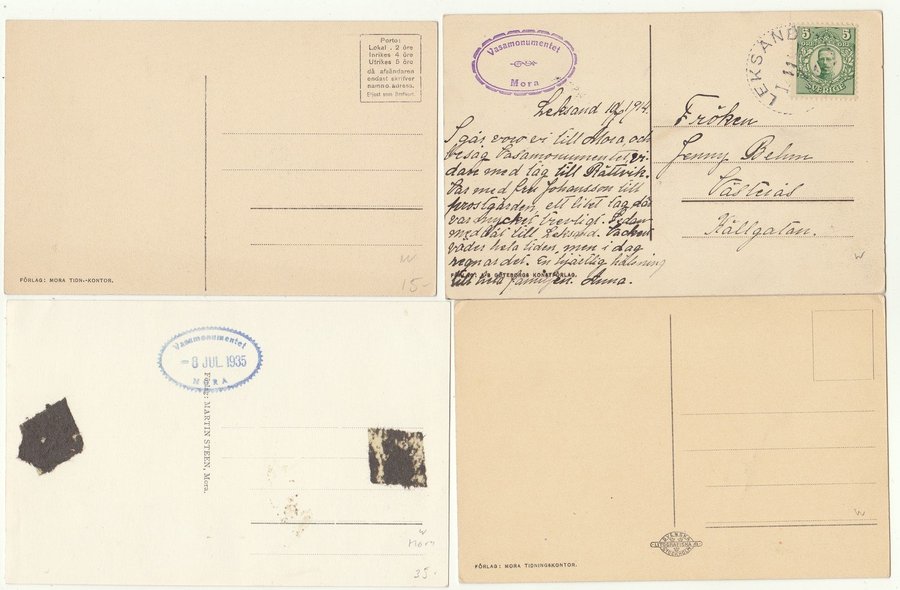 Porto:
Lokal . 2 öre
Inrikes 4 öre
Utrikes 5 öre
då afsändaren
endast skrifver
namn o. adress.
Eljest som brefkort.
W
15-
FÖRLAG: MORA TIDN.-KONTOR.
Vasamonumentet
Mora
LEKSAND
11
5 5
ÖRE ÖRE
SVERIGE
Leksand 1914.
I går voro vi till Mora, och
besåg Vasamonumentet, vi-
dare med tåg till Rättvik.
Var med fru Johansson till
prostgården, ett litet tag där
var mycket trevligt. Sedan
med båt till Leksand. Vackert
väder hela tiden, men i dag
regnar det. En hjärtlig hälsning
till hela familjen. Anna.
FÖRLAG: A/B GÖTEBORGS KONSTFÖRLAG.
Fröken
Jenny Behm
Västerås
Källgatan.
W
Vasamonumentet
-8 JUL 1935
MORA
Förlag: MARTIN STEEN, Mora.
W
Mora
35-
W
SVENSKA
LITOGRAFISKA A.B
STOCKHOLM
FÖRLAG: MORA TIDNINGSKONTOR.